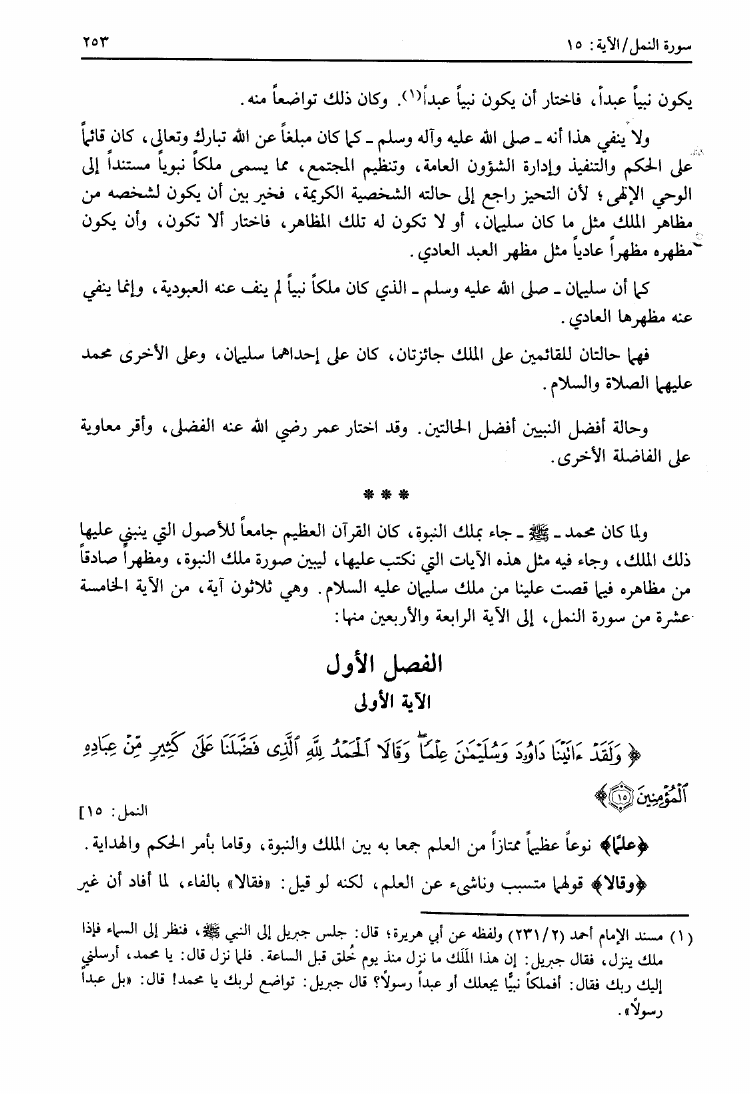 سورة النمل/الآية: ١٥
٢٥٣
يكون نبياً عبداً، فاختار أن يكون نبياً عبداً(١). وكان ذلك تواضعاً منه.
ولا ينفي هذا أنه ـ صلى الله عليه وآله وسلم ـ كما كان مبلغاً عن الله تبارك وتعالى، كان قائماً
على الحكم والتنفيذ وإدارة الشؤون العامة، وتنظيم المجتمع، مما يسمى ملكاً نبوياً مستنداً إلى
الوحي الإلهي؛ لأن التحيز راجع إلى حالته الشخصية الكريمة، فخير بين أن يكون لشخصه من
مظاهر الملك مثل ما كان سليمان، أو لا تكون له تلك المظاهر، فاختار ألا تكون، وأن يكون
مظهره مظهراً عادياً مثل مظهر العبد العادي.
كما أن سليمان ـ صلى الله عليه وسلم ـ الذي كان ملكاً نبياً لم ينف عنه العبودية، وإنما ينفي
عنه مظهرها العادي.
فهما حالتان للقائمين على الملك جائزتان، كان على إحداهما سليمان، وعلى الأخرى محمد
عليهما الصلاة والسلام.
وحالة أفضل النبيين أفضل الحالتين. وقد اختار عمر رضي الله عنه الفضلى، وأقر معاوية
على الفاضلة الأخرى.
* * *
ولما كان محمد ـ ﷺ ـ جاء بملك النبوة، كان القرآن العظيم جامعاً للأصول التي ينبني عليها
ذلك الملك، وجاء فيه مثل هذه الآيات التي نكتب عليها، ليبين صورة ملك النبوة، ومظهراً صادقاً
من مظاهره فيما قصت علينا من ملك سليمان عليه السلام. وهي ثلاثون آية، من الآية الخامسة
عشرة من سورة النمل، إلى الآية الرابعة والأربعين منها:
الفصل الأول
الآية الأولى
﴿ وَلَقَدْ ءَاتَيْنَا دَاوُۥدَ وَسُلَيْمَٰنَ عِلْمًاۖ وَقَالَا ٱلْحَمْدُ لِلَّهِ ٱلَّذِى فَضَّلَنَا عَلَىٰ كَثِيرٍ مِّنْ عِبَادِهِ
ٱلْمُؤْمِنِينَ ١٥ ﴾
النمل: ١٥]
﴿علمًا﴾ نوعاً عظيماً ممتازاً من العلم جمعا به بين الملك والنبوة، وقاما بأمر الحكم والهداية.
﴿وقالا﴾ قولهما متسبب وناشىء عن العلم، لكنه لو قيل: «فقالا» بالفاء، لما أفاد أن غير
(١) مسند الإمام أحمد (٢/ ٢٣١) ولفظه عن أبي هريرة؛ قال: جلس جبريل إلى النبي ﷺ، فنظر إلى السماء فإذا
ملك ينزل، فقال جبريل: إن هذا المَلَك ما نزل منذ يوم خُلق قبل الساعة. فلما نزل قال: يا محمد، أرسلني
إليك ربك فقال: أفملكاً نبيًّا يجعلك أو عبداً رسولاً؟ قال جبريل: تواضع لربك يا محمد! قال: «بل عبداً
رسولاً».